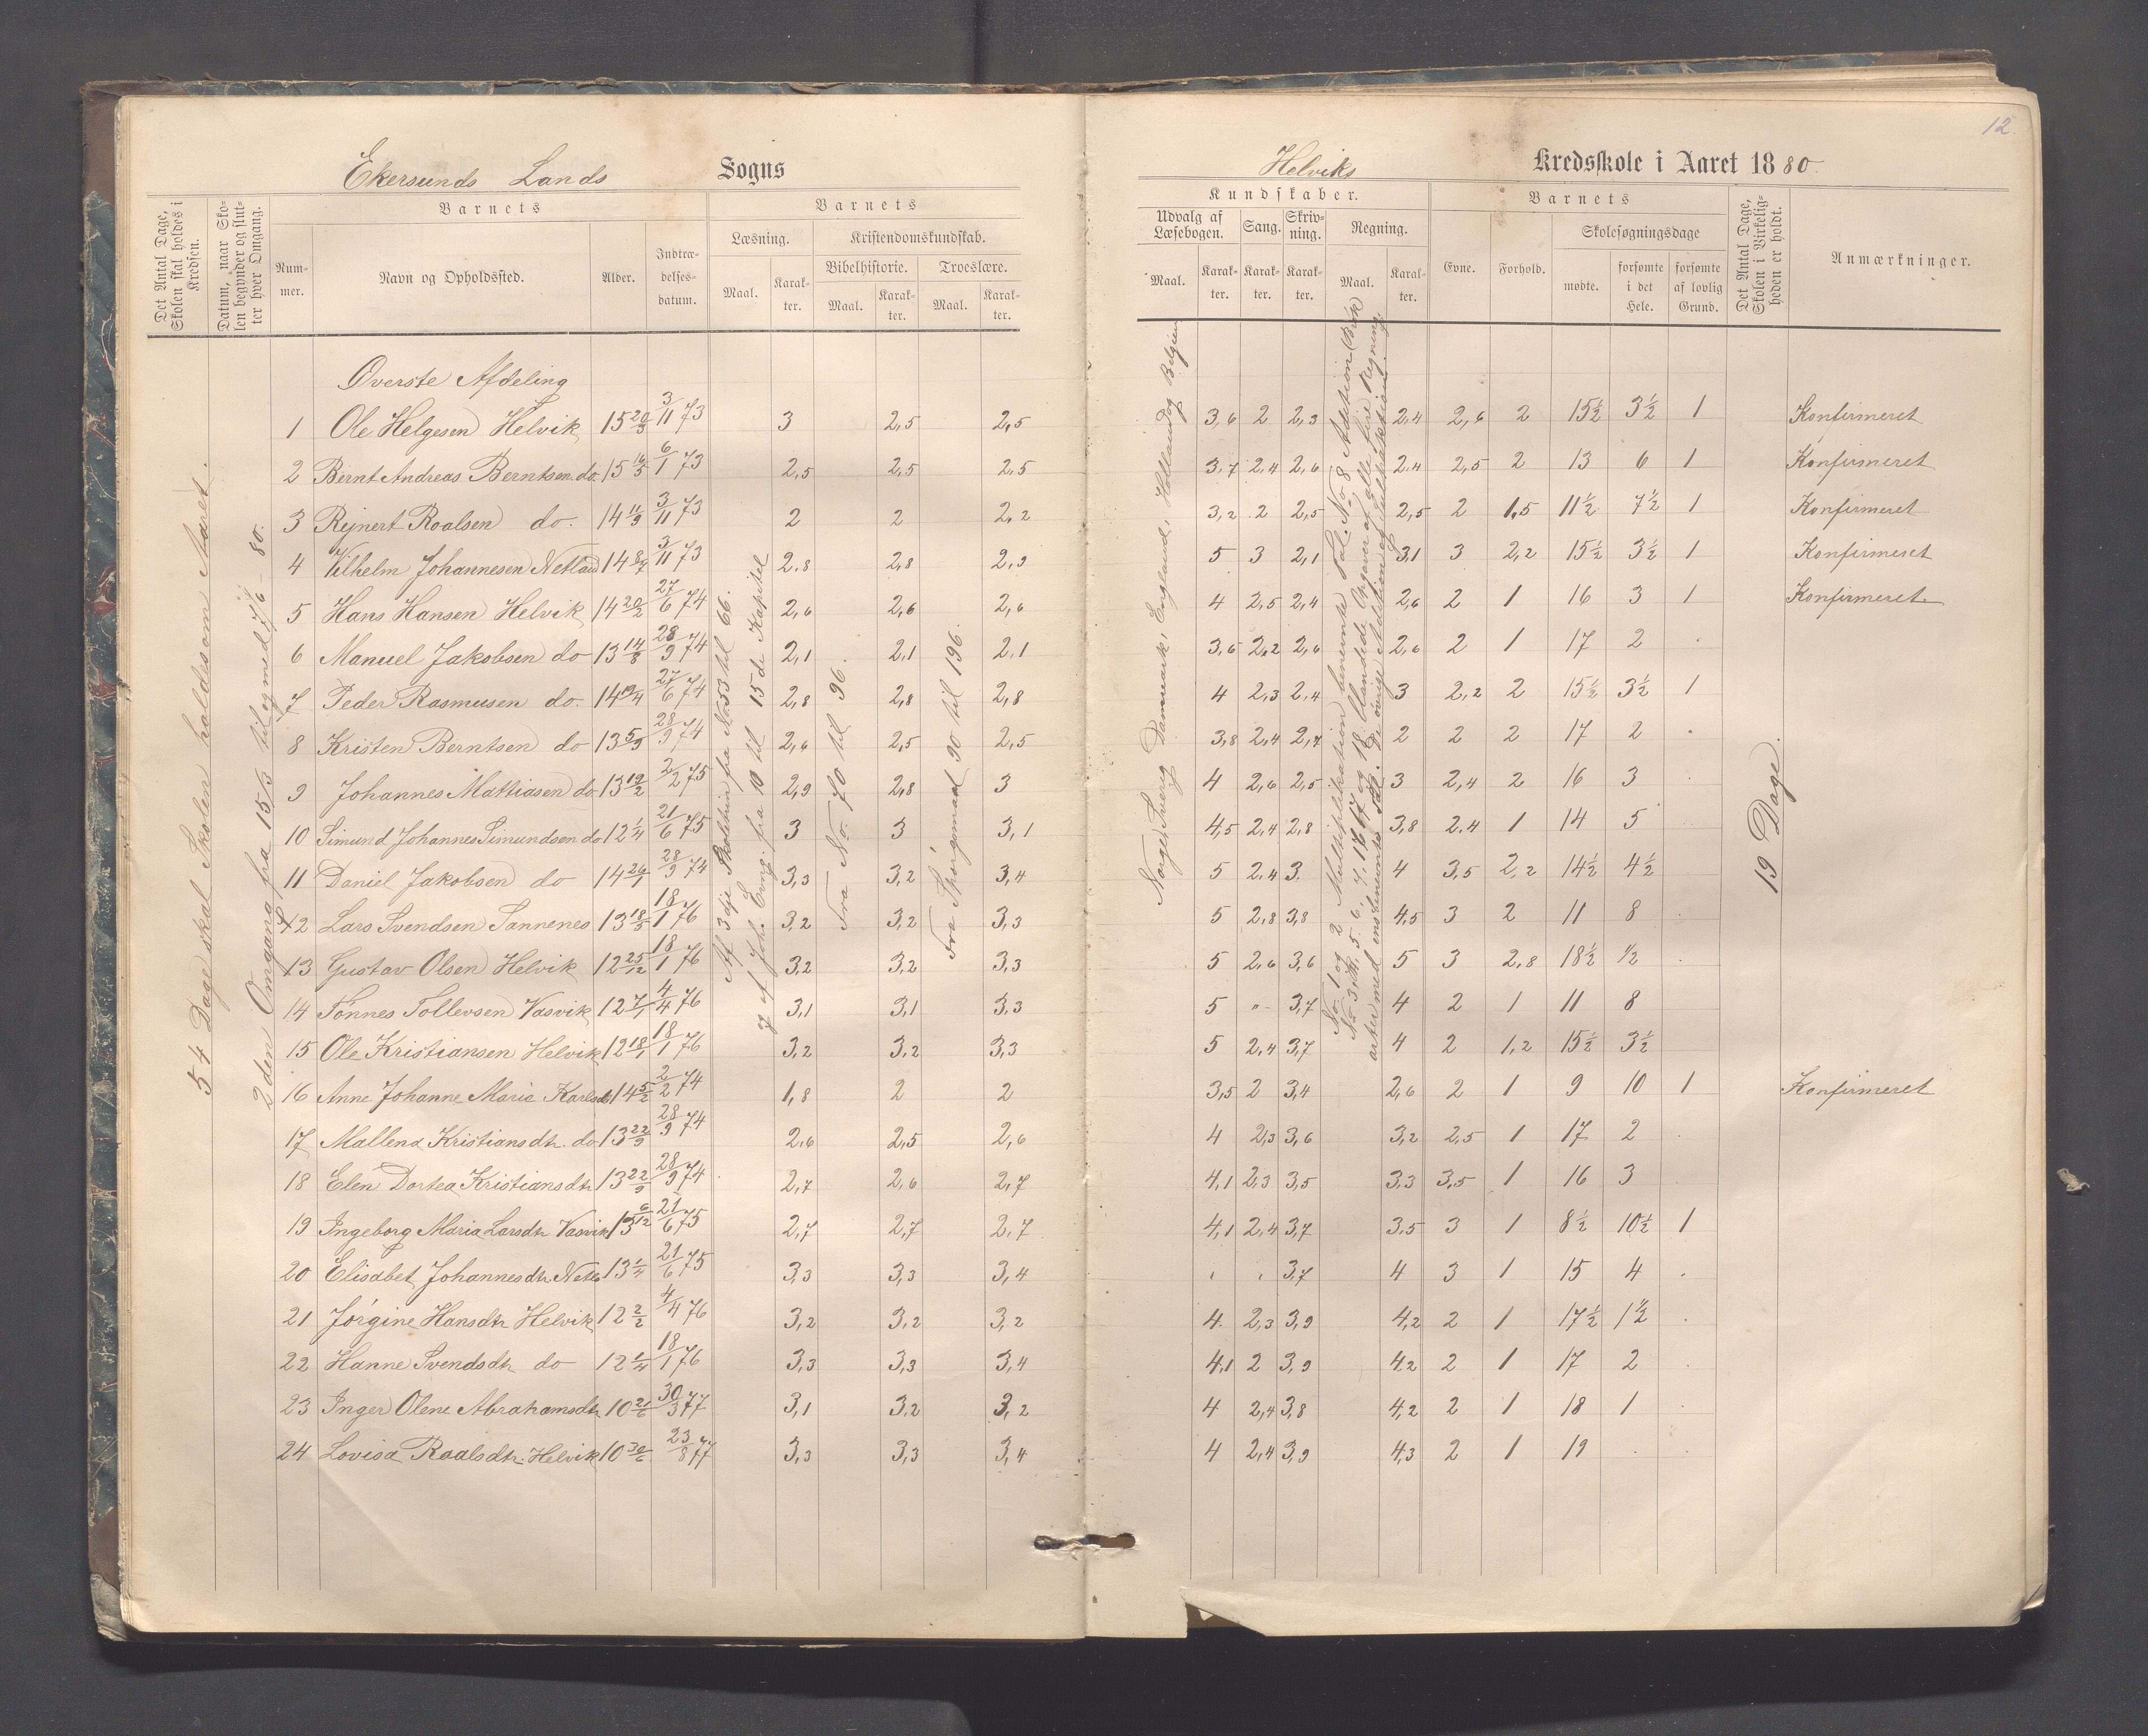 12.
Ekersunds Lands Sogns
Helviks Kredsskole i Aaret 1880
Det Antal Dage, Skolen skal holdes i Kredsen.
Datum, naar Skolen begynder og slutter hver Omgang.
Barnets
Nummer.
Navn og Opholdssted.
Alder.
Indtrædelsesdatum.
Barnets
Læsning.
Maal.
Karakter.
Kristendomskundskab.
Bibelhistorie.
Maal.
Karakter.
Troeslære.
Maal.
Karakter.
Kundskaber.
Udvalg af Læsebogen.
Maal.
Karakter.
Sang.
Karakter.
Skrivning.
Karakter.
Regning.
Maal.
Karakter.
Barnets
Evne.
Forhold.
Skolesøgningsdage
mødte.
forsømte i det Hele.
forsømte af lovlig Grund.
Det Antal Dage, Skolen i Virkeligheden er holdt.
Anmærkninger.
54 Dage skal Skolen holdes om Aaret.
2den Omgang fra 15/3 til og med 7/6 - 80.
Af 3die Skoletrin fra No. 53 til 66.
og af Joh. Evng. fra 10 til 15de Kapitel
Fra No. 70 til 96.
Fra Spørgsmaal 90 til 196.
Norge, Sverig, Danmark, England, Holland og Belgien
19 Dage.
Øverste Afdeling
1 Ole Helgesen Helvik 15 20/3 3/11 73 3 2,5 2,5 3,6 2 2,3 2,4 2,6 2 15½ 3½ 1 Konfirmeret
2 Bernt Andreas Berntsen do. 15 16/5 6/1 73 2,5 2,5 2,5 3,7 2,4 2,6 2,4 2,5 2 13 6 1 Konfirmeret
3 Rejnert Roalsen do. 14 11/9 3/11 73 2 2 2,2 3,2 2 2,5 2,5 2 1,5 11½ 7½ 1 Konfirmeret
4 Vilhelm Johannesen Netland 14 8/7 3/11 73 2,8 2,8 2,9 5 3 2,1 3,1 3 2,2 15½ 3½ 1 Konfirmeret
5 Hans Hansen Helvik 14 20/2 27/6 74 2,6 2,6 2,6 4 2,5 2,4 2,6 2 1 16 3 1 Konfirmeret
6 Manuel Jakobsen do 13 14/8 28/9 74 2,1 2,1 2,1 3,6 2,2 2,6 2,6 2 1 17 2
7 Peder Rasmusen do. 14 19/4 27/6 74 2,8 2,8 2,8 4 2,3 2,4 3 2,2 2 15½ 3½ 1
8 Kristen Berntsen do 13 5/9 28/9 74 2,6 2,5 2,5 3,8 2,4 2,7 2 2 2 17 2
9 Johannes Mattiasen do 13 19/2 2/2 75 2,9 2,8 3 4 2,6 2,5 3 2,4 2 16 3
10 Simund Johannes Simundsen do 12 1/4 21/6 75 3 3 3,1 4,5 2,4 2,8 3,8 2,4 1 14 5
11 Daniel Jakobsen do 14 26/1 28/9 74 3,3 3,2 3,4 5 2,4 3. 4 3,5 2,2 14½ 4½
12 Lars Svendsen Sannenes 13 18/5 18/1 76 3,2 3,2 3,3 5 2,8 3,8 4,5 3 2 11 8
13 Gustav Olsen Helvik 12 25/12 18/1 76 3,2 3,2 3,3 5 2,6 3,6 5 3 2,8 18½ ½
14 Tønnes Tollevsen Vasvik 12 7/1 4/4 76 3,1 3,1 3,3 5 " 3,7 4 2 1 11 8
15 Ole Kristiansen Helvik 12 18/1 18/1 76 3,2 3,2 3,3 5 2,4 3,7 4 2 1,2 15½ 3½
16 Anne Johanne Marie Karlsdt 14 5/2 2/2 74 1,8 2 2 3,5 2 3,4 2,6 2 1 9 10 1 Konfirmeret
17 Mallena Kristiansdtr. do 13 22/9 28/9 74 2,6 2,5 2,6 4 2,3 3,6 3,2 2,5 1 17 2
18 Elen Dortea Kristiansdtr 13 22/9 28/9 74 2,7 2,6 2,7 4,1 2,3 3,5 3,3 3,5 1 16 3
19 Ingeborg Maria Larsdtr Vasvik 13 6/12 21/6 75 2,7 2,7 2,7 4,1 2,4 3,7 3,5 3 1 8½ 10½ 1
20 Elisabet Johannesdtr. Netl 13 1/4 21/6 75 3,3 3,3 3,4 3,7 4 3 1 15 4
21 Jørgine Hansdtr Helvik 12 2/2 4/4 76 3,2 3,2 3,2 4 2,3 3,9 4,2 2 1 17½ 1½
22 Hanne Svendsdtr do 12 1/4 18/1 76 3,3 3,3 3,4 4,1 2 3,9 4,2 2 1 17 2
23 Inger Olene Abrahamsdtr 10 21/6 30/3 77 3,1 3,2 3,2 4 2,4 3,8 4,2 2 1 18 1
24 Lovisa Roalsdtr. Helvik 10 30/6 23/8 77 3,3 3,3 3,4 4 2,4 3,9 4,3 2 1 19